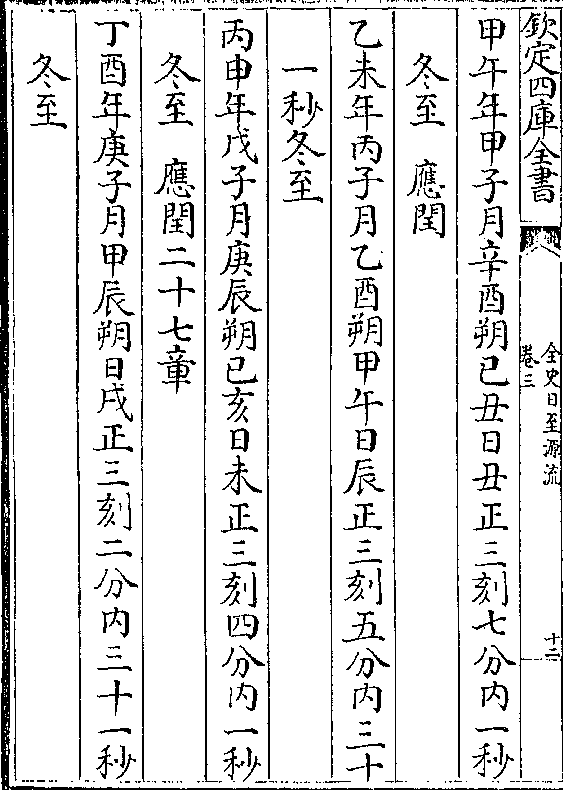 欽定四庫全書
全史日至源流
卷三
十二
甲午年甲子月辛酉朔已丑日丑正三刻七分内一秒
冬至　應閏
乙未年丙子月乙酉朔甲午日辰正三刻五分内三十
一秒冬至
丙申年戊子月庚辰朔已亥日未正三刻四分内一秒
冬至　應閏二十七章
丁酉年庚子月甲辰朔日戌正三刻二分内三十一秒
冬至